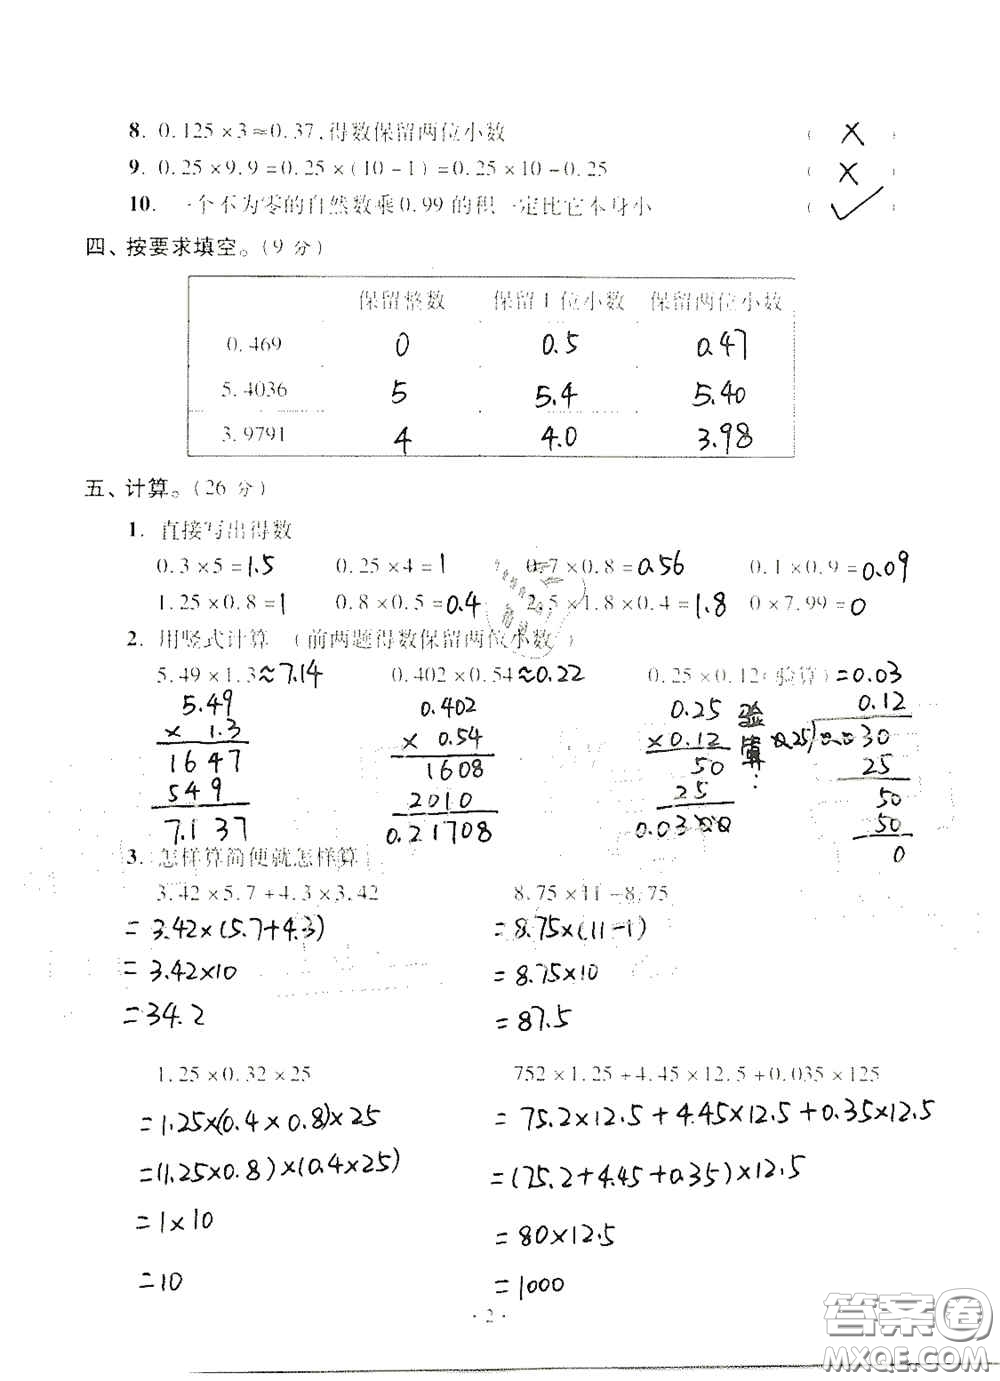 8. 0.125×3≈0.37,得数保留两位小数 ( × )
9. 0.25×9.9=0.25×(10-1)=0.25×10-0.25 ( × )
10. 一个不为零的自然数乘0.99的积一定比它本身小 ( ✓
四、按要求填空。(9 分)
保留整数 保留1位小数 保留两位小数
0.469 0 0.5 0.47
5.4036 5 5.4 5.40
3.9791 4 4.0 3.98
五、计算。(26 分)
1. 直接写出得数
0.3×5=1.5 0.25×4=1 0.7×0.8=0.56 0.1×0.9=0.09
1.25×0.8=1 0.8×0.5=0.4 2.5×1.8×0.4=1.8 0×7.99=0
2. 用竖式计算 (前两题得数保留两位小数)
5.49×1.3≈7.14 0.402×0.54≈0.22 0.25×0.12(验算)=0.03
5.49 0.402 0.25 验算: 0.12
× 1.3 × 0.54 ×0.12 0.25)0.030
1647 1608 50 25
549 2010 25 50
7.137 0.21708 0.0300 50
0
3. 怎样算简便就怎样算
3.42×5.7+4.3×3.42 8.75×11-8.75
=3.42×(5.7+4.3) =8.75×(11-1)
=3.42×10 =8.75×10
=34.2 =87.5
1.25×0.32×25 752×1.25+4.45×12.5+0.035×125
=1.25×(0.4×0.8)×25 =75.2×12.5+4.45×12.5+0.35×12.5
=(1.25×0.8)×(0.4×25) =(75.2+4.45+0.35)×12.5
=1×10 =80×12.5
=10 =1000
·2·
答案圈
MXQE.COM